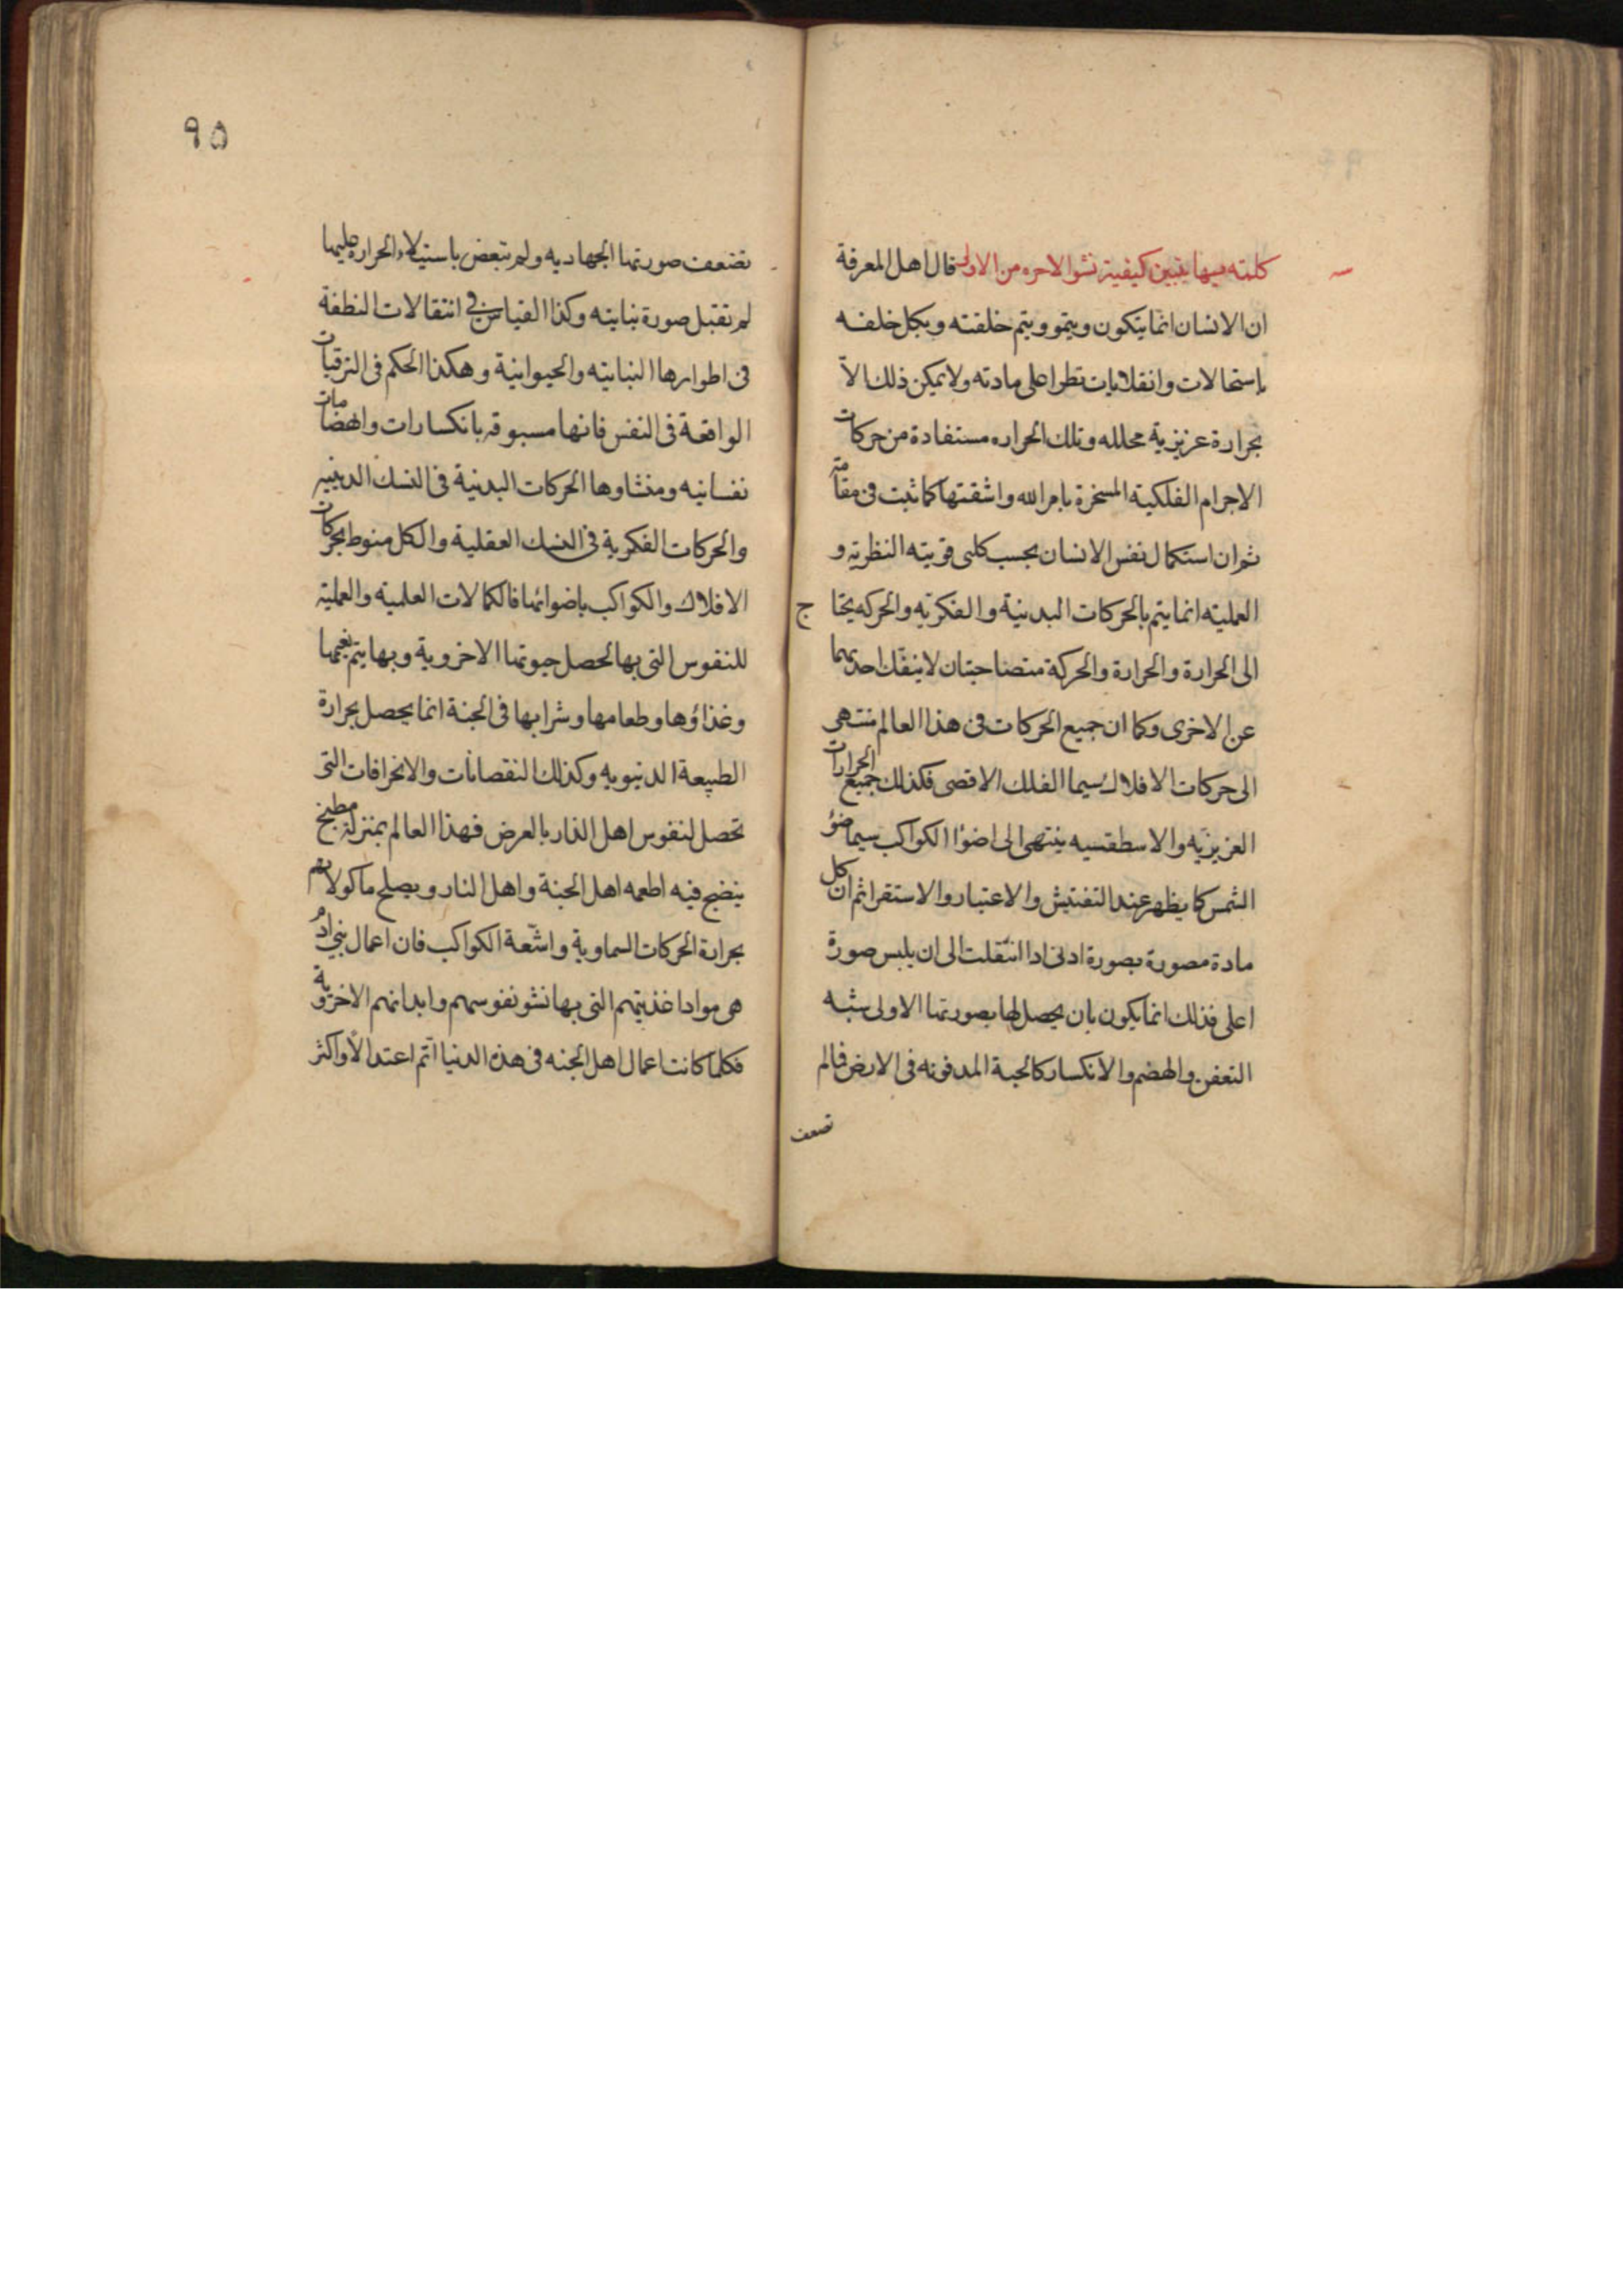 كلمته بها يتبين كيفية نشو الاخره من الاولى قال اهل المعرفة
ان الانسان انما يتكون وينمو ويتم خلقته ويكمل خلقه
باستحالات وانقلابات تطرا على مادته ولا يمكن ذلك الا
بحرارة غريزية محلله وتلك الحراره مستفادة من حركات
الاجرام الفلكية المسخرة بامر الله واشقتها كما ثبت فى مقامه
ثم ان استكمال نفس الانسان بحسب كلتى قويته النظرية و
العملية انما يتم بالحركات البدنية والفكرية والحركه يحتاج
الى الحرارة والحرارة والحركة متصاحبتان لا ينفك احديهما
عن الاخرى وكما ان جميع الحركات فى هذا العالم منتهى
الى حركات الافلاك سيما الفلك الاقصى فكذلك جميع الحرارات
الغريزيه والاسطقسيه ينتهى الى اضوا الكواكب سيما ضوء
الشمس كما يظهر عند التفتيش والاعتبار والاستقرا ثم ان كل
مادة مصورة بصورة ادنى اذا انتقلت الى ان يلبس صورة
اعلى فذلك انما يكون بان يحصل لها بصورتها الاولى شبه
التعفن والهضم والانكسار كالحبة المدفونه فى الارض فالم
تضعف
٩٥
تضعف صورتها الجهاديه ولم تبعض باستيلاء الحراره عليها
لم تقبل صورة نباتيه وكذا القياس فى انتقالات النطفة
فى اطوارها النباتيه والحيوانية وهكذا الحكم فى الترقيات
الواقعة فى النفس فانها مسبوقه بانكسارات وانهضامات
نفسانيه ومنشاوها الحركات البدنية فى النسك الدينيه
والحركات الفكرية فى النسك العقلية والكل منوط بحركات
الافلاك والكواكب باضوائها فالكمالات العلمية والعملية
للنفوس التى بها تحصل حيوتها الاخروية وبها يتم نعيمها
وغذاؤها وطعامها وشرابها فى الجنة انما يحصل بحرارة
الطبيعة الدنيويه وكذلك النقصانات والانحرافات التى
تحصل لنفوس اهل النار بالعرض فهذا العالم بمنزلة مطبخ
ينضج فيه اطعمه اهل الجنة واهل النار ويصلح ماكولاتهم
بحرارة الحركات السماوية واشعة الكواكب فان اعمال بنى ادم
هى مواد اغذيتهم التى بها نشو نفوسهم وابدانهم الاخروية
فكلما كانت اعمال اهل الجنه فى هذه الدنيا اتم اعتدالا واكثر